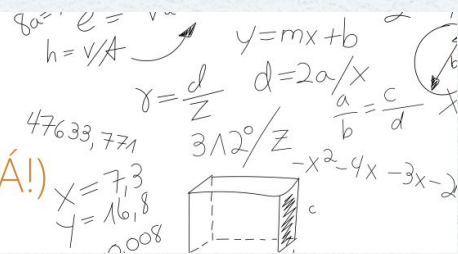 8a=
e =
h = v/A
y=mx+b
γ = d/z
d=2a/x
a/b = c/d
X
47633,771
312°/z
-x²-4x-3x-2
Á!)
x = 7,3
y = 16,8
0,008
c
b